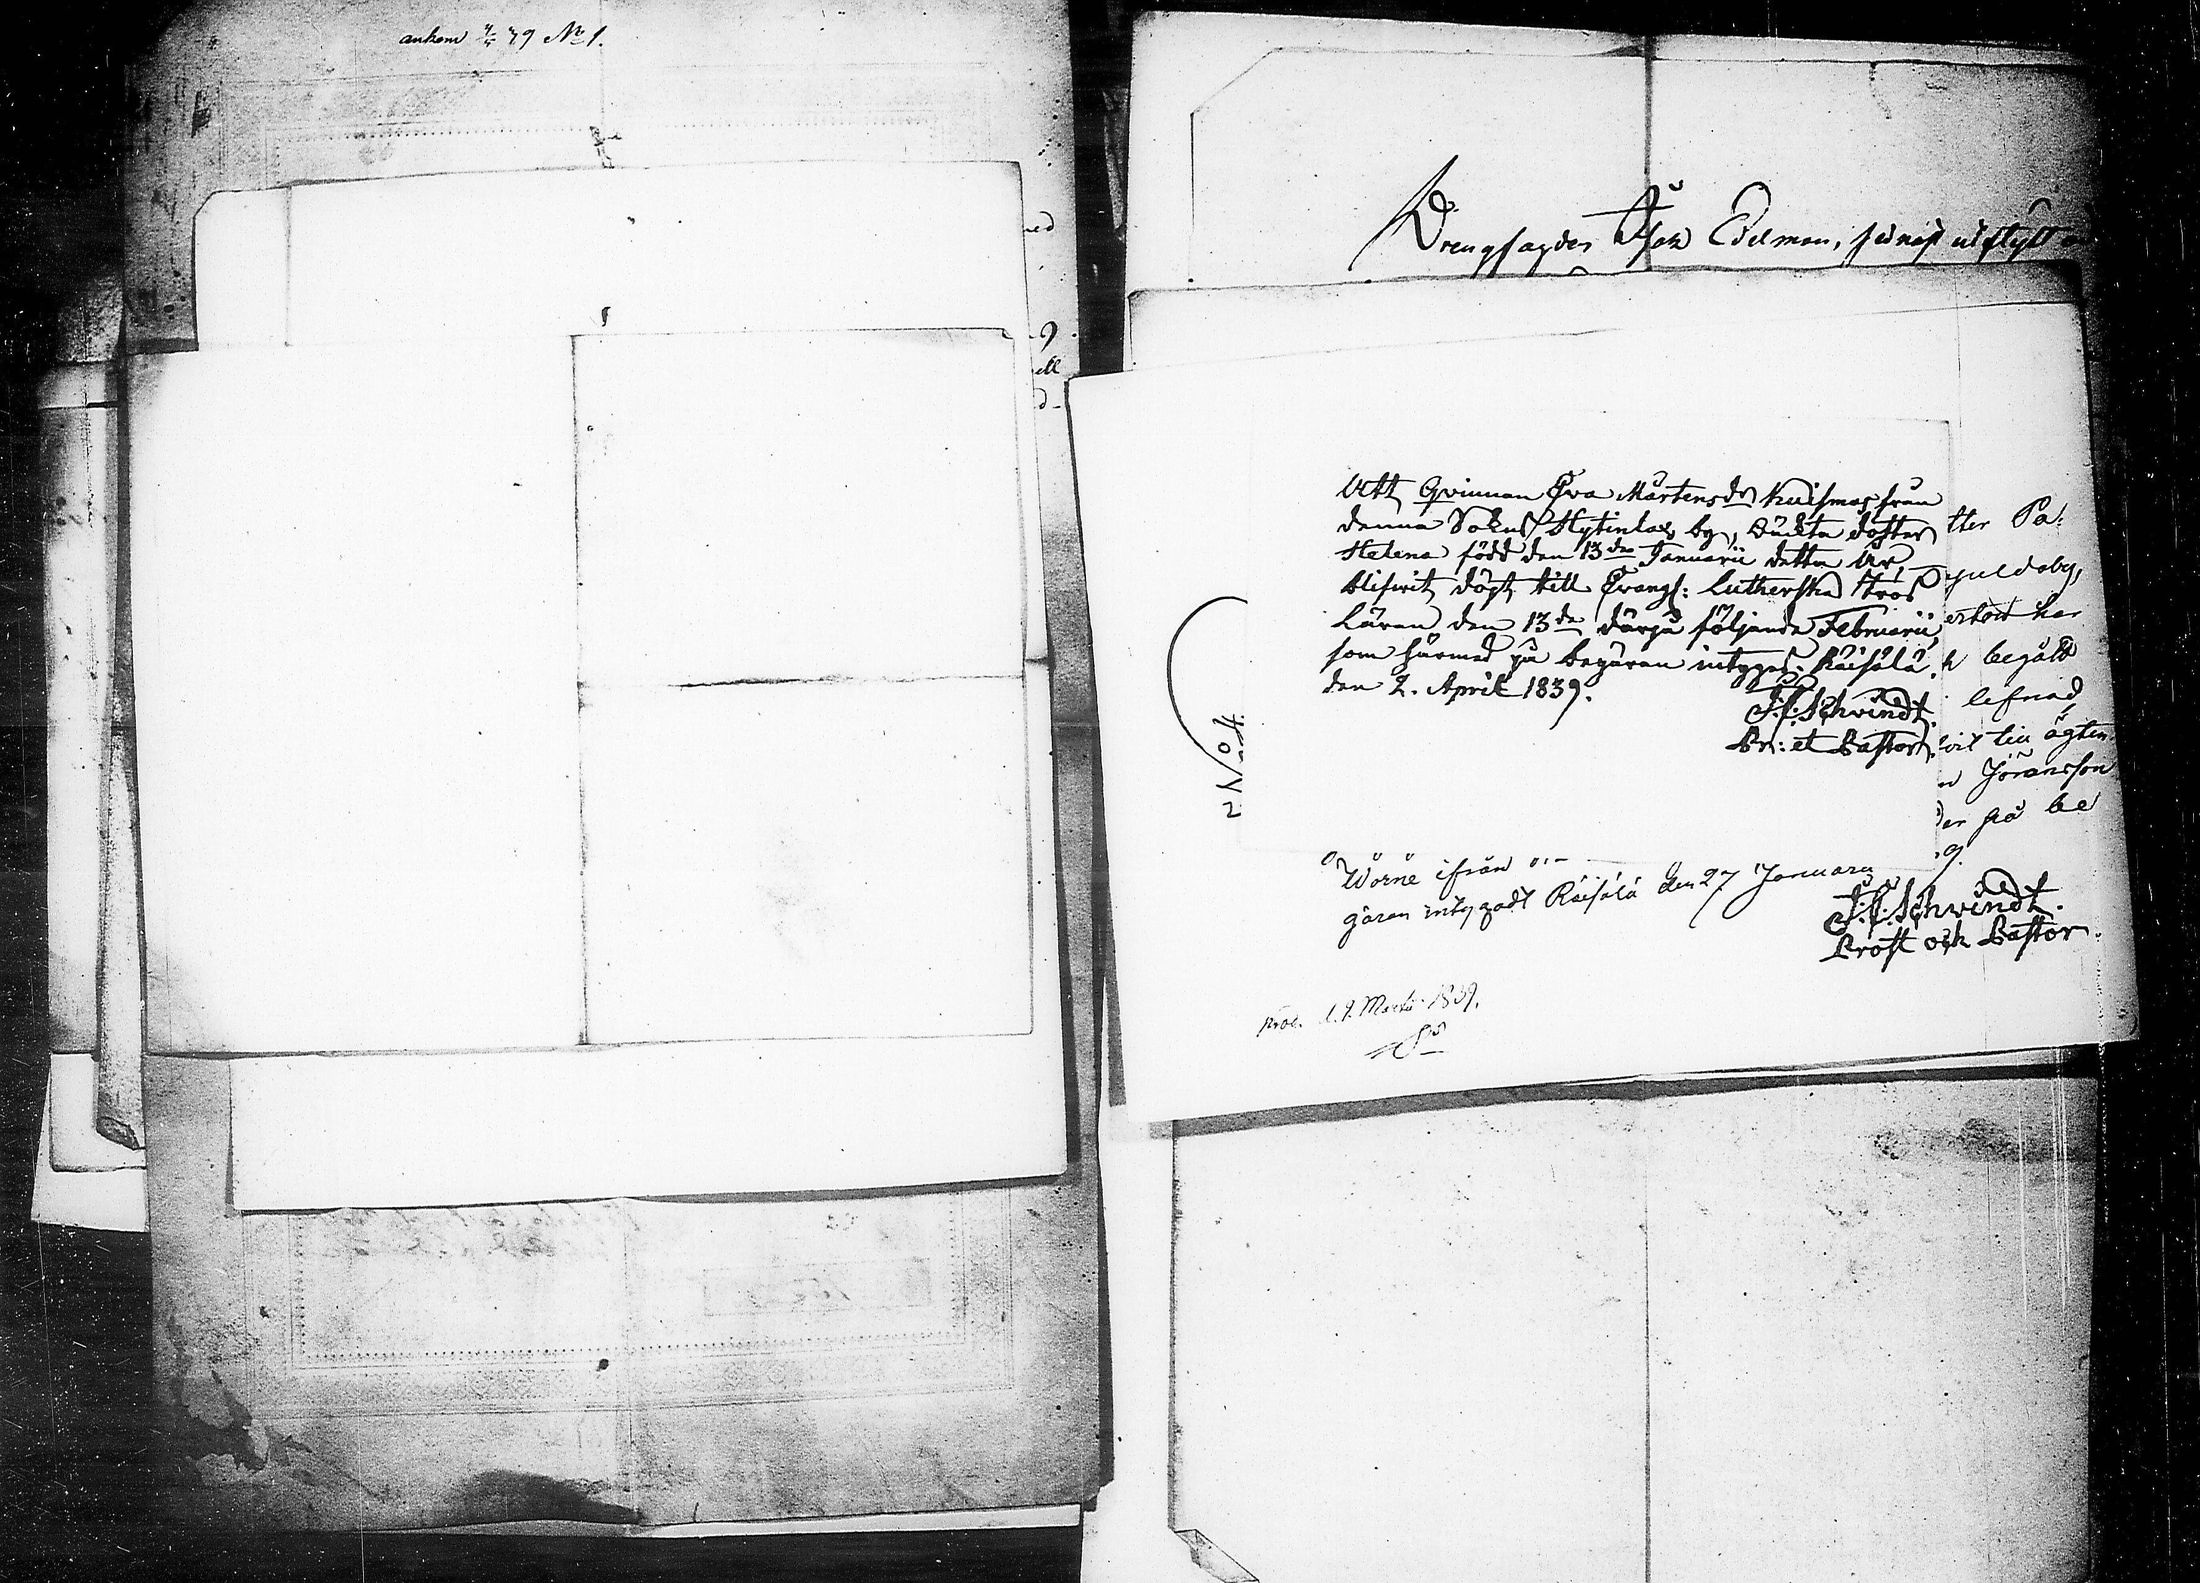 ankom 4/4 39 No 1.
Drengkarlen Isak Edelman, sednast utflytt
Att Qvinnan Eva Mårtensdr Kuismas från
denna Sokns Hytinlax by, oäckta dotter
Helena född den 13de Januarii detta År,
blifwit döpt till Evangs: Lutherska Tros
Läran den 13de därpå följande Februarii,
som härmed på begäran intygas. Räisälä
den 2. April 1839.
J. F. Schvindt.
Pr: et Pastor.
tter Pa:
begått
lefnad
vil till ägten
Joransson
der på be
9.
No 4.
ifrån
gäran intygadt Räisälä den 27 Januarii
J. F. Schvindt.
Prost och Pastor.
prod. d. 9. Martii 1839.